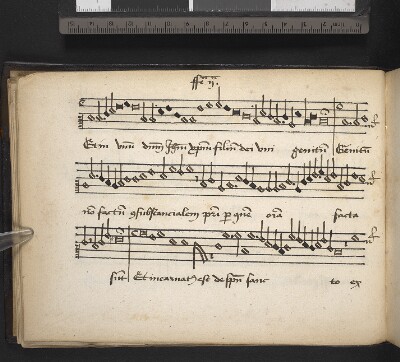 Et in unū dnm Jhm xpm filiū dei uni genitū Genitū
nō factū ꝯsubstancialem pri p quē oīa facta
sūt Et incarnat est de spū sanc to ex